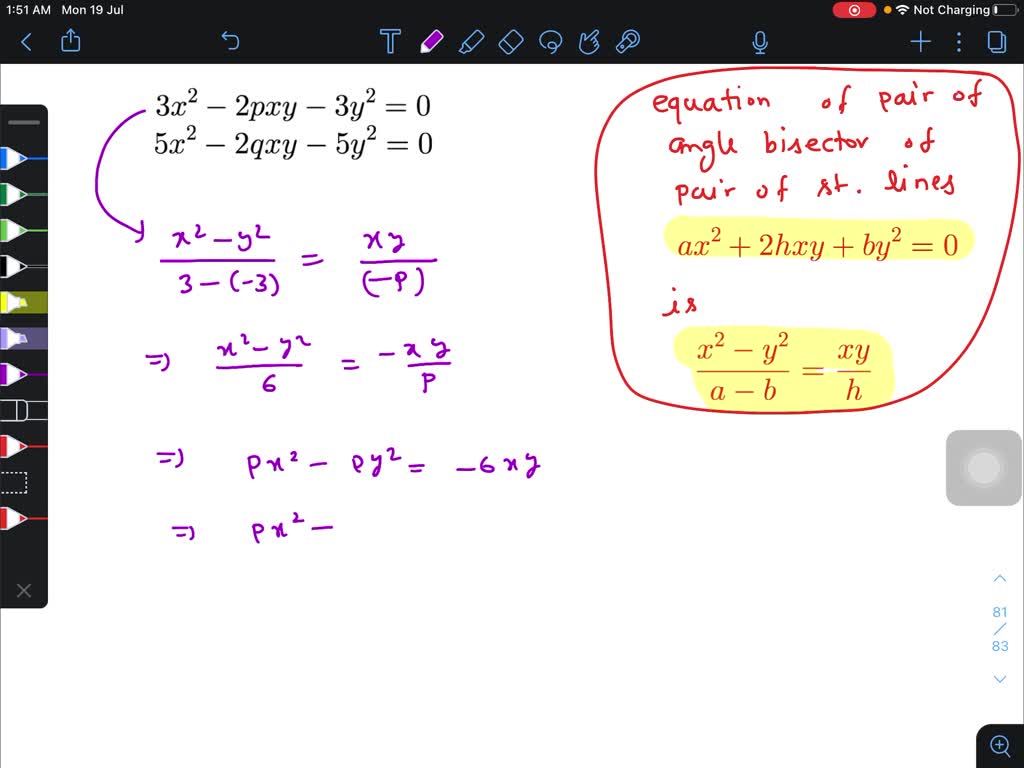 1:51 AM Mon 19 Jul
Not Charging
T
3x² − 2pxy − 3y² = 0
5x² − 2qxy − 5y² = 0
(x² − y²)/(3 − (−3)) = xy/(−p)
⇒ (x² − y²)/6 = −xy/p
⇒ px² − py² = −6xy
⇒ px² −
equation of pair of
angle bisector of
pair of st. lines
ax² + 2hxy + by² = 0
is
(x² − y²)/(a − b) = xy/h
81
/
83